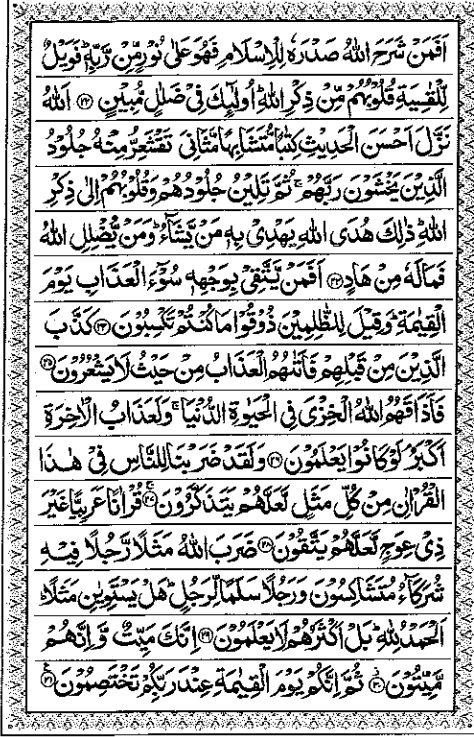 اَفَمَنْ شَرَحَ اللهُ صَدْرَهٗ لِلْاِسْلَامِ فَهُوَ عَلٰى نُوْرٍ مِّنْ رَّبِّهٖ فَوَيْلٌ
لِّلْقٰسِيَةِ قُلُوْبُهُمْ مِّنْ ذِكْرِ اللهِ اُولٰٓئِكَ فِيْ ضَلٰلٍ مُّبِيْنٍ ﴿۲۲﴾ اَللهُ
نَزَّلَ اَحْسَنَ الْحَدِيْثِ كِتٰبًا مُّتَشَابِهًا مَّثَانِيَ تَقْشَعِرُّ مِنْهُ جُلُوْدُ
الَّذِيْنَ يَخْشَوْنَ رَبَّهُمْ ثُمَّ تَلِيْنُ جُلُوْدُهُمْ وَقُلُوْبُهُمْ اِلٰى ذِكْرِ
اللهِ ذٰلِكَ هُدَى اللهِ يَهْدِيْ بِهٖ مَنْ يَّشَآءُ وَمَنْ يُّضْلِلِ اللهُ
فَمَا لَهٗ مِنْ هَادٍ ﴿۲۳﴾ اَفَمَنْ يَّتَّقِيْ بِوَجْهِهٖ سُوْٓءَ الْعَذَابِ يَوْمَ
الْقِيٰمَةِ وَقِيْلَ لِلظّٰلِمِيْنَ ذُوْقُوْا مَا كُنْتُمْ تَكْسِبُوْنَ ﴿۲۴﴾ كَذَّبَ
الَّذِيْنَ مِنْ قَبْلِهِمْ فَاَتٰىهُمُ الْعَذَابُ مِنْ حَيْثُ لَا يَشْعُرُوْنَ ﴿۲۵﴾
فَاَذَاقَهُمُ اللهُ الْخِزْيَ فِي الْحَيٰوةِ الدُّنْيَا وَلَعَذَابُ الْاٰخِرَةِ
اَكْبَرُ لَوْ كَانُوْا يَعْلَمُوْنَ ﴿۲۶﴾ وَلَقَدْ ضَرَبْنَا لِلنَّاسِ فِيْ هٰذَا
الْقُرْاٰنِ مِنْ كُلِّ مَثَلٍ لَّعَلَّهُمْ يَتَذَكَّرُوْنَ ﴿۲۷﴾ قُرْاٰنًا عَرَبِيًّا غَيْرَ
ذِيْ عِوَجٍ لَّعَلَّهُمْ يَتَّقُوْنَ ﴿۲۸﴾ ضَرَبَ اللهُ مَثَلًا رَّجُلًا فِيْهِ
شُرَكَآءُ مُتَشَاكِسُوْنَ وَرَجُلًا سَلَمًا لِّرَجُلٍ هَلْ يَسْتَوِيٰنِ مَثَلًا
اَلْحَمْدُ لِلهِ بَلْ اَكْثَرُهُمْ لَا يَعْلَمُوْنَ ﴿۲۹﴾ اِنَّكَ مَيِّتٌ وَّاِنَّهُمْ
مَّيِّتُوْنَ ﴿۳۰﴾ ثُمَّ اِنَّكُمْ يَوْمَ الْقِيٰمَةِ عِنْدَ رَبِّكُمْ تَخْتَصِمُوْنَ ﴿۳۱﴾